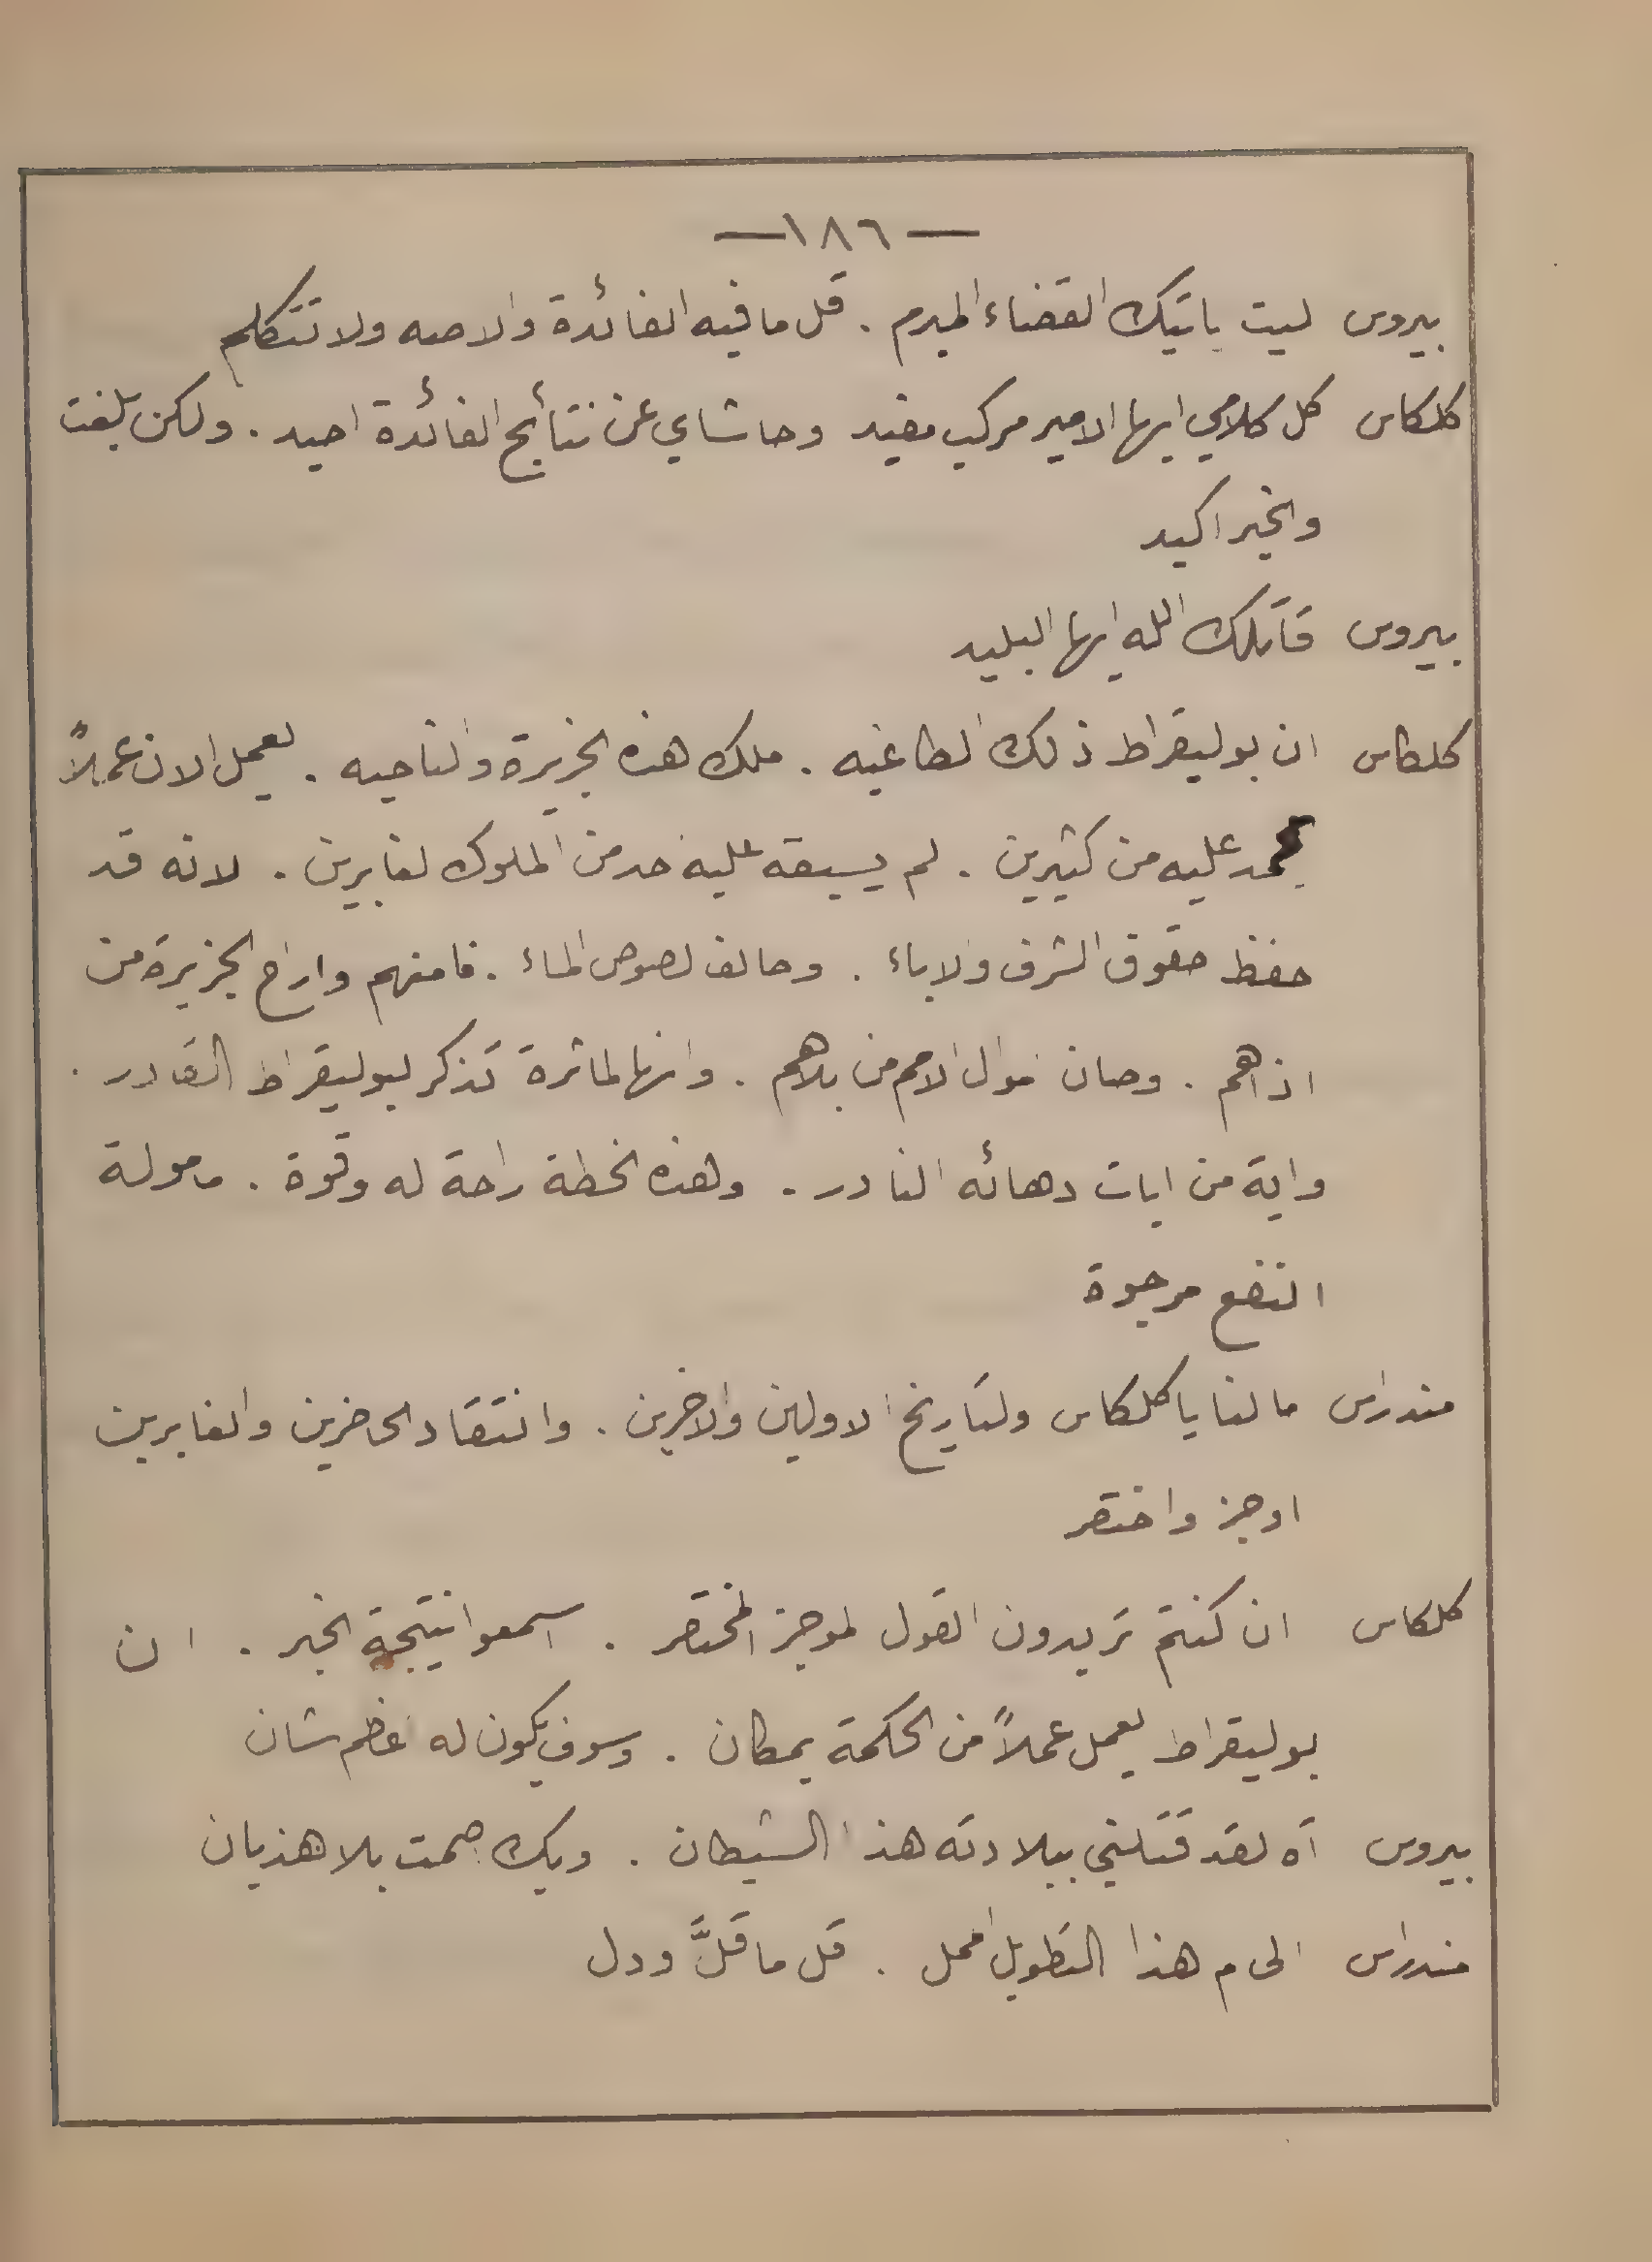 —١٨٦—
بيروس ليت ياتيك القضاء المبرم . قل ما فيه الفائدة والا صه ولا تتكلم
كلكاس كل كلامي ايها الامير مركب مفيد وحاشاي عن نتائج الفائدة احيد . ولكن بلغت
والخبر اكيد
بيروس قاتلك الله ايها البليد
كلكاس ان بوليقراط ذلك الطاغيه . ملك هذه الجزيرة والناحيه . يعمل الان عملاً
يحمد عليه من كثيرين . لم يسبقه عليه احد من الملوك الغابرين . لانه قد
حفظ حقوق الشرف والاباء . وحالف لصوص الماء . فامنهم واراح الجزيرة من
اذاهم . وصان اموال الامم من بلاهم . وانها لماثرة تذكر لبوليقراط القادر .
واية من ايات دهائه النادر . ولهذه الخطة راحة له وقوة . مامولة
النفع مرجوة
مندراس ما لنا يا كلكاس ولتاريخ الاولين والاخرين . وانتقاد الحاضرين والغابرين
اوجز واختصر
كلكاس ان كنتم تريدون القول الموجز المختصر . اسمعوا نتيجة الخبر . ان
بوليقراط يعمل عملاً من الحكمة بمكان . وسوف يكون له اعظم شان
بيروس آه لقد قتلني ببلادته هذا الشيطان . ويك صمت بلا هذيان
مندراس الى م هذا التطويل الممل . قل ما قلَّ ودل